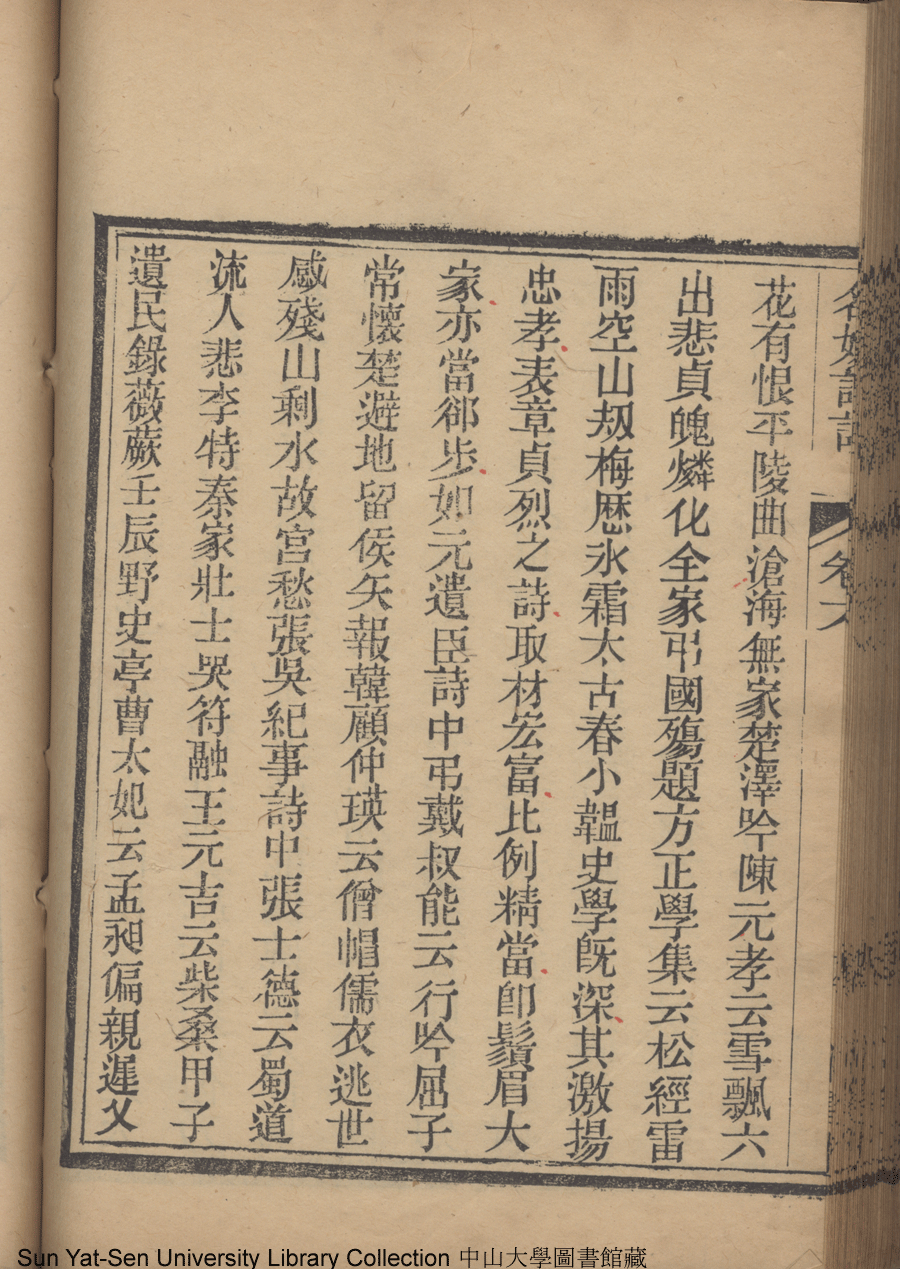 名媛詩話 卷六
花有恨平陵曲滄海無家楚澤吟陳元孝云雪飄六
出悲貞魄燐化全家弔國殤題方正學集云松經雷
雨空山刼梅歷氷霜太古春小韞史學旣深其激揚
忠孝表章貞烈之詩取材宏富比例精當卽鬚眉大
家亦當郤步如元遺臣詩中弔戴叔能云行吟屈子
常懷楚避地留侯矢報韓顧仲瑛云僧帽儒衣逃世
感殘山剩水故宮愁張吳紀事詩中張士德云蜀道
流人悲李特秦家壯士哭符融王元吉云柴桑甲子
遺民錄薇蕨壬辰野史亭曹太妃云孟昶偏親遲父
Sun Yat-Sen University Library Collection 中山大學圖書館藏